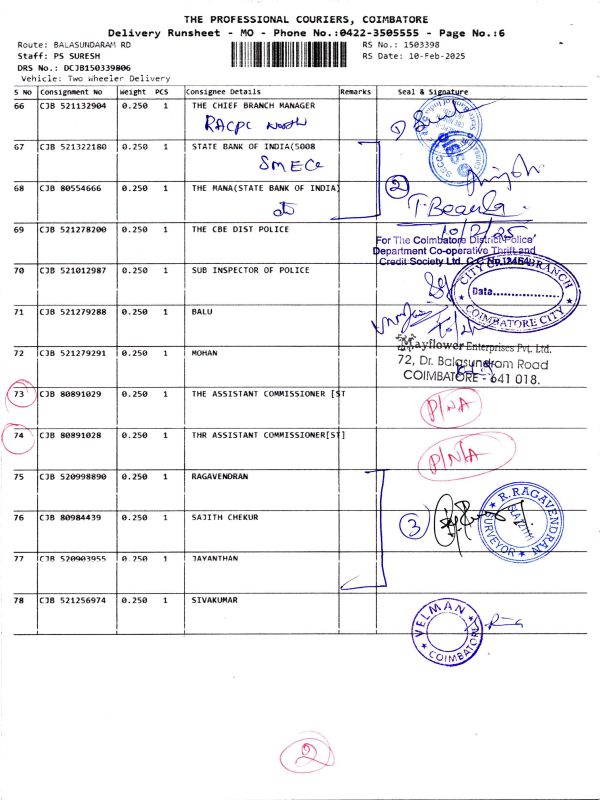 THE PROFESSIONAL COURIERS, COIMBATORE
Delivery Runsheet - MO - Phone No.:0422-3505555 - Page No.:6
Route: BALASUNDARAM RD RS No.: 1503398
Staff: PS SURESH RS Date: 10-Feb-2025
DRS No.: DCJB150339806
Vehicle: Two Wheeler Delivery
S No Consignment No Weight PCS Consignee Details Remarks Seal & Signature
66 CJB 521132904 0.250 1 THE CHIEF BRANCH MANAGER
RACPC North
67 CJB 521322180 0.250 1 STATE BANK OF INDIA(5008
SMECC
68 CJB 80554666 0.250 1 THE MANA(STATE BANK OF INDIA)
2
T. Beaula
10/2/25
69 CJB 521278200 0.250 1 THE CBE DIST POLICE
For The Coimbatore District Police
Department Co-operative Thrift and
Credit Society Ltd. C.C.No.
70 CJB 521012987 0.250 1 SUB INSPECTOR OF POLICE
CITY BRANCH
Data................
COIMBATORE CITY
71 CJB 521279288 0.250 1 BALU
72 CJB 521279291 0.250 1 MOHAN
Mayflower Enterprises Pvt. Ltd.
72, Dr. Balasundram Road
COIMBATORE - 641 018.
73 CJB 80891029 0.250 1 THE ASSISTANT COMMISSIONER [ST
P/N/A
74 CJB 80891028 0.250 1 THR ASSISTANT COMMISSIONER[ST]
P/N/A
75 CJB 520998890 0.250 1 RAGAVENDRAN
76 CJB 80984439 0.250 1 SAJITH CHEKUR
3
R. RAGAVENDRAN
SURVEYOR
77 CJB 520903955 0.250 1 JAYANTHAN
78 CJB 521256974 0.250 1 SIVAKUMAR
VELMAN
COIMBATORE
2